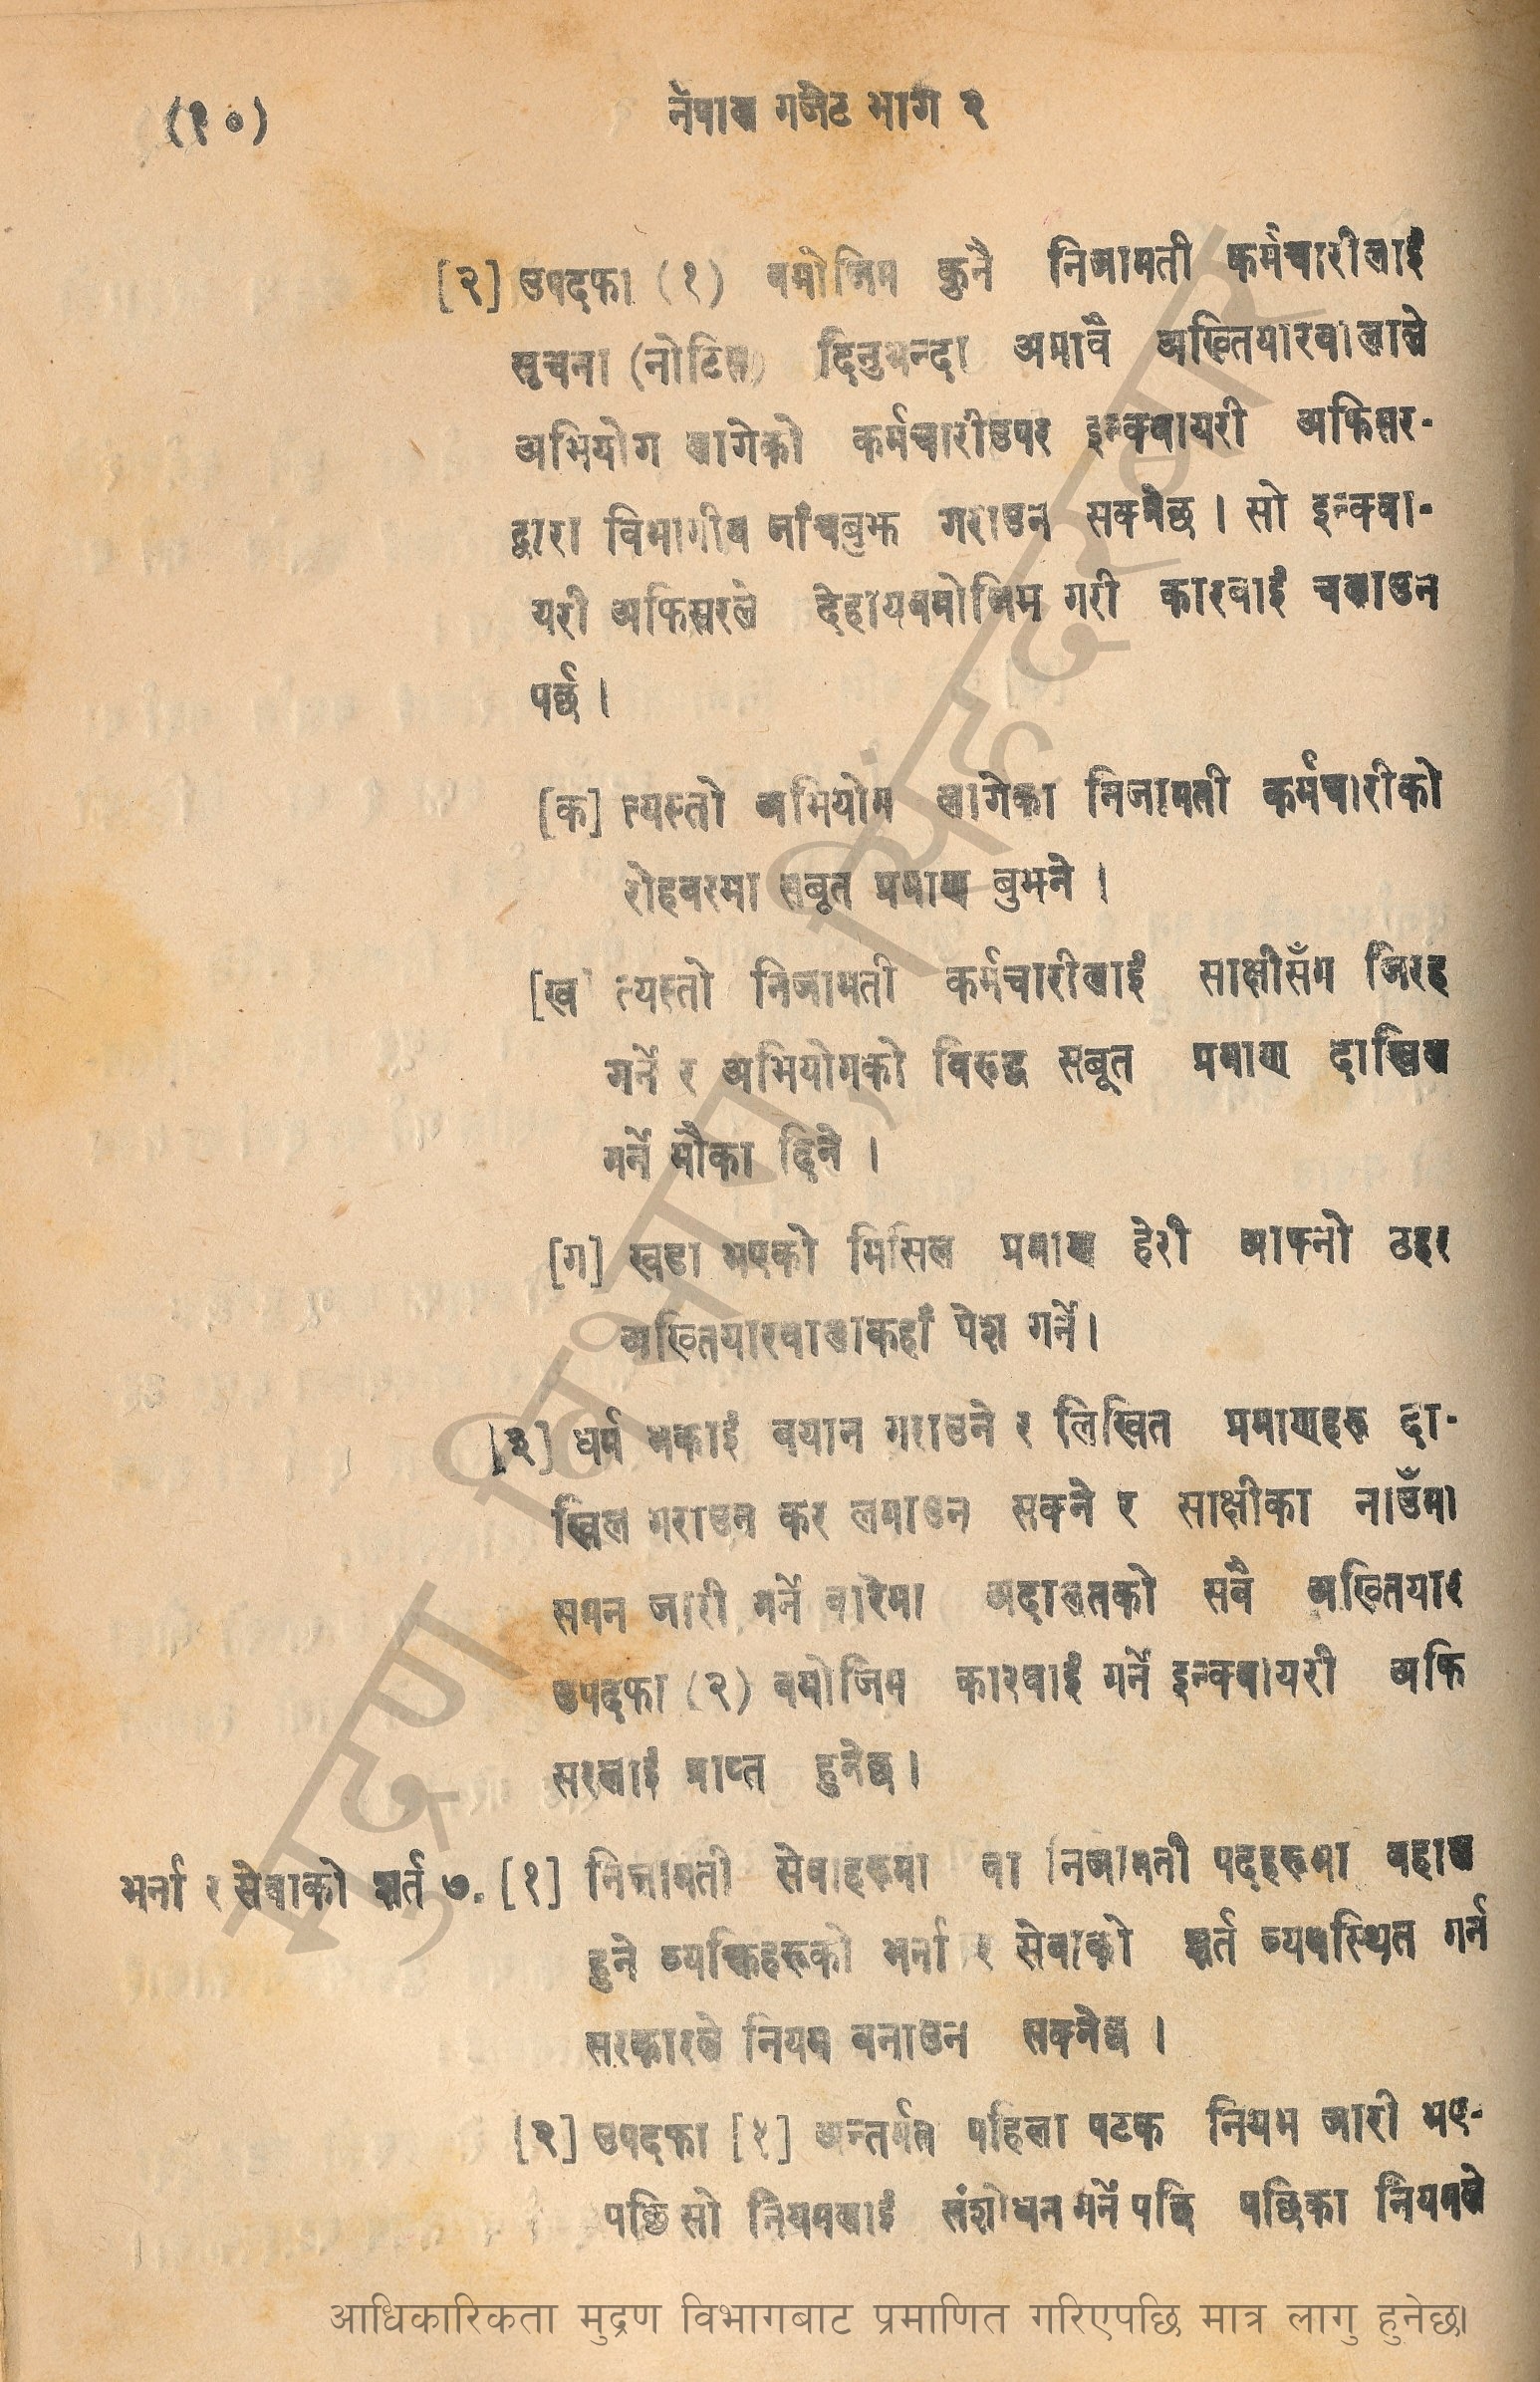 (१०)
नेपाल गजेट भाग २
[२] उपदफा (१) बमोजिम कुनै निजामती कर्मचारीलाई
सूचना (नोटिस) दिनुभन्दा अगावै अख्तियारवालाले
अभियोग लागेको कर्मचारीउपर इन्क्वायरी अफिसर-
द्वारा विभागीय जाँचबुझ गराउन सक्नेछ । सो इन्क्वा-
यरी अफिसरले देहायबमोजिम गरी कारवाई चलाउन
पर्छ ।
[क] त्यस्तो अभियोग लागेका निजामती कर्मचारीको
रोहवरमा सबूत प्रमाण बुझ्ने ।
[ख] त्यस्तो निजामती कर्मचारीलाई साक्षीसँग जिरह
गर्ने र अभियोगको विरुद्ध सबूत प्रमाण दाखिल
गर्ने मौका दिने ।
[ग] खडा भएको मिसिल प्रमाण हेरी आफ्नो ठहर
अख्तियारवालाकहाँ पेश गर्ने।
[३] धर्म भकाई बयान गराउने र लिखित प्रमाणहरू दा-
खिल गराउन कर लगाउन सक्ने र साक्षीका नाउँमा
समन जारी गर्ने बारेमा अदालतको सबै अख्तियार
उपदफा (२) बमोजिम कारवाई गर्ने इन्क्वायरी अफि
सरलाई प्राप्त हुनेछ।
भर्ना र सेवाको शर्त ७. [१] निजामती सेवाहरूमा वा निजामती पदहरूमा बहाल
हुने व्यक्तिहरूको भर्ना र सेवाको शर्त व्यवस्थित गर्न
सरकारले नियम बनाउन सक्नेछ ।
[२] उपदफा [१] अन्तर्गत पहिला पटक नियम जारी भए-
पछि सो नियमलाई संशोधन गर्ने पछि पछिका नियमले
मुद्रण विभाग, सिंहदरबार
आधिकारिकता मुद्रण विभागबाट प्रमाणित गरिएपछि मात्र लागु हुनेछ।